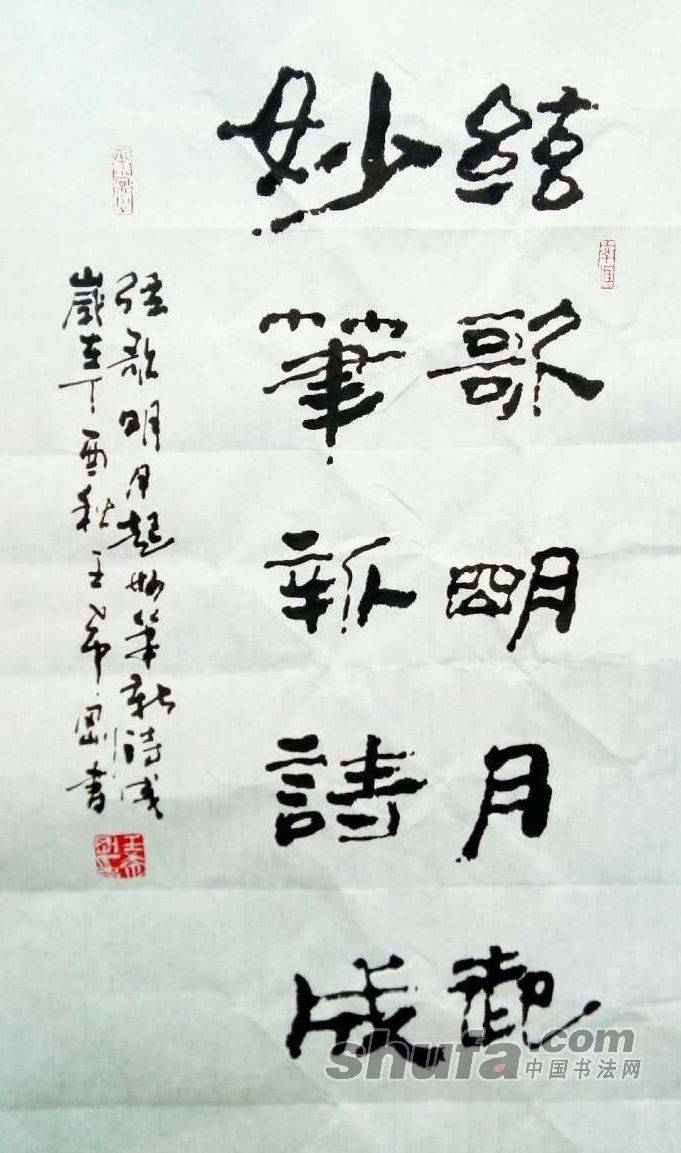 弦歌明月起
妙筆新詩成
弦歌明月起妙筆新詩成
歲在丁酉秋王希剛書
shufa.com
中国书法网